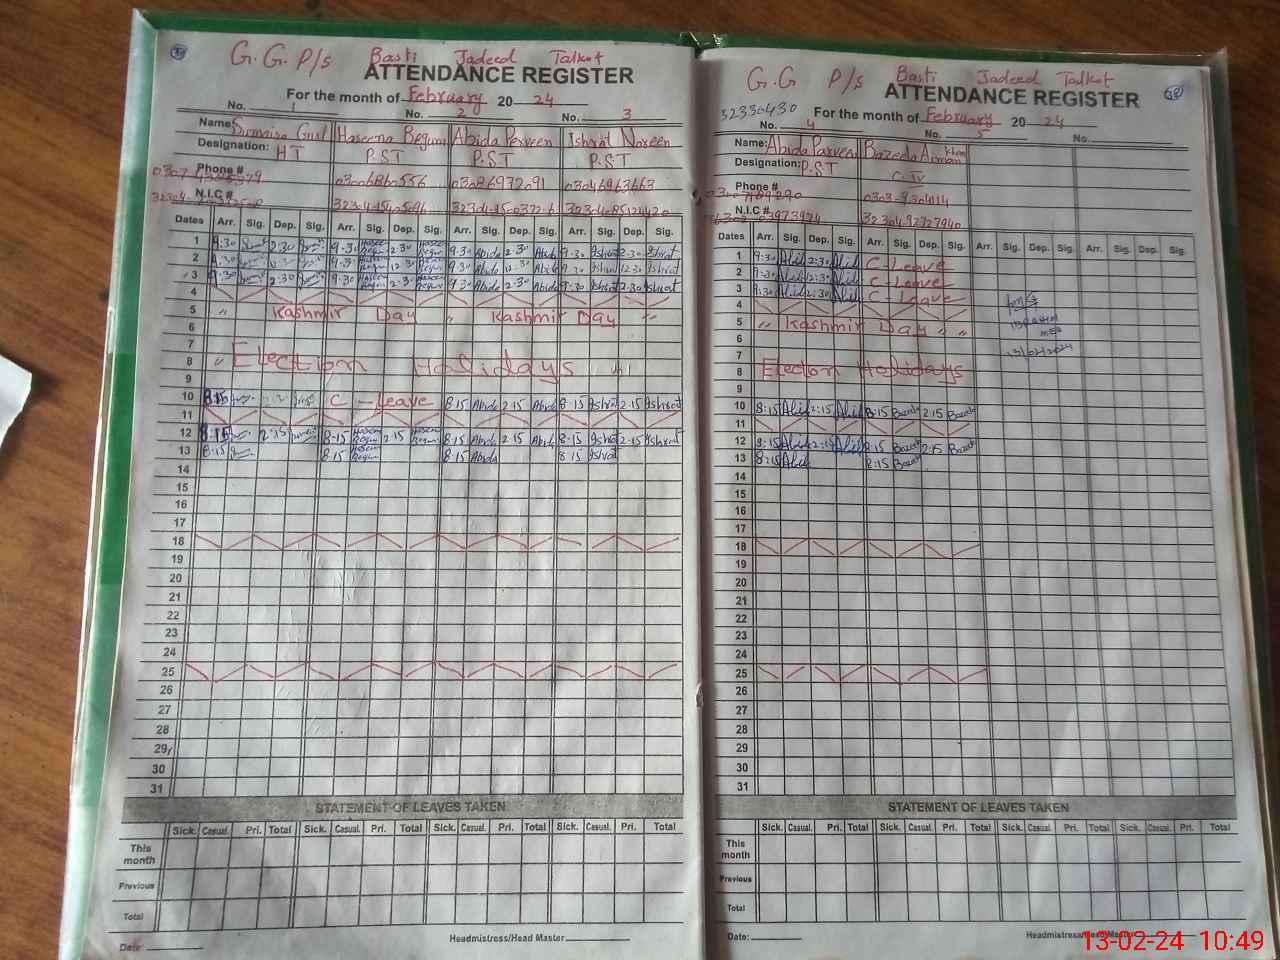 G.G. P/s Basti Jadeed Talkot
ATTENDANCE REGISTER
For the month of February 20 24
No. 1 No. 2 No. 3
Name: Haseena Begum Abida Parveen Ishrat Noreen
Designation: HT P.ST P.ST P.ST
Phone # 03006860556 03086972091 03046963663
N.I.C #
Dates Arr. Sig. Dep. Sig. Arr. Sig. Dep. Sig. Arr. Sig. Dep. Sig. Arr. Sig. Dep. Sig.
1 9:30 2:30 9.30 Haseena Begum 2.30 Haseena Begum 9.30 Abida 2.30 Abida 9.30 Ishrat 2.30 Ishrat
2 9.30 12.30 9.30 Haseena Begum 12.30 Haseena Begum 9.30 Abida 12.30 Abida 9.30 Ishrat 12.30 Ishrat
3 9.30 2:30 9.30 Haseena Begum 2.30 Haseena Begum 9.30 Abida 2.30 Abida 9.30 Ishrat 2.30 Ishrat
4
5 " Kashmir Day " Kashmir Day "
6
7
8 " Election Holidays "
9
10 8:15 C - Leave 8.15 Abida 2.15 Abida 8.15 Ishrat 2.15 Ishrat
11
12 8:15 2:15 8.15 Haseena Begum 2.15 Haseena Begum 8.15 Abida 2.15 Abida 8.15 Ishrat 2.15 Ishrat
13 8:15 8.15 Haseena Begum 8.15 Abida 8.15 Ishrat
14
15
16
17
18
19
20
21
22
23
24
25
26
27
28
29
30
31
STATEMENT OF LEAVES TAKEN
Sick. Casual. Pri. Total Sick. Casual. Pri. Total Sick. Casual. Pri. Total Sick. Casual. Pri. Total
This month
Previous
Total
Date: Headmistress/Head Master
G.G P/s Basti Jadeed Talkot
ATTENDANCE REGISTER
32330430 For the month of February 20 24
No. 4 No. 5 No.
Name: Abida Parveen Khan
Designation: P.ST C-IV
Phone #
N.I.C # 3230492727940
Dates Arr. Sig. Dep. Sig. Arr. Sig. Dep. Sig. Arr. Sig. Dep. Sig. Arr. Sig. Dep. Sig.
1 9:30 2:30 C-Leave
2 9:30 12:30 C-Leave
3 9:30 2:30 C-Leave
4
5 " Kashmir Day " "
6
7 13/02/2024
8 Election Holidays
9
10 8:15 2:15 8:15 2:15
11
12 8:15 2:15 8:15 2:15
13 8:15 8:15
14
15
16
17
18
19
20
21
22
23
24
25
26
27
28
29
30
31
STATEMENT OF LEAVES TAKEN
Sick. Casual. Pri. Total Sick. Casual. Pri. Total Sick. Casual. Pri. Total Sick. Casual. Pri. Total
This month
Previous
Total
Date: Headmistress/Head Master
13-02-24 10:49